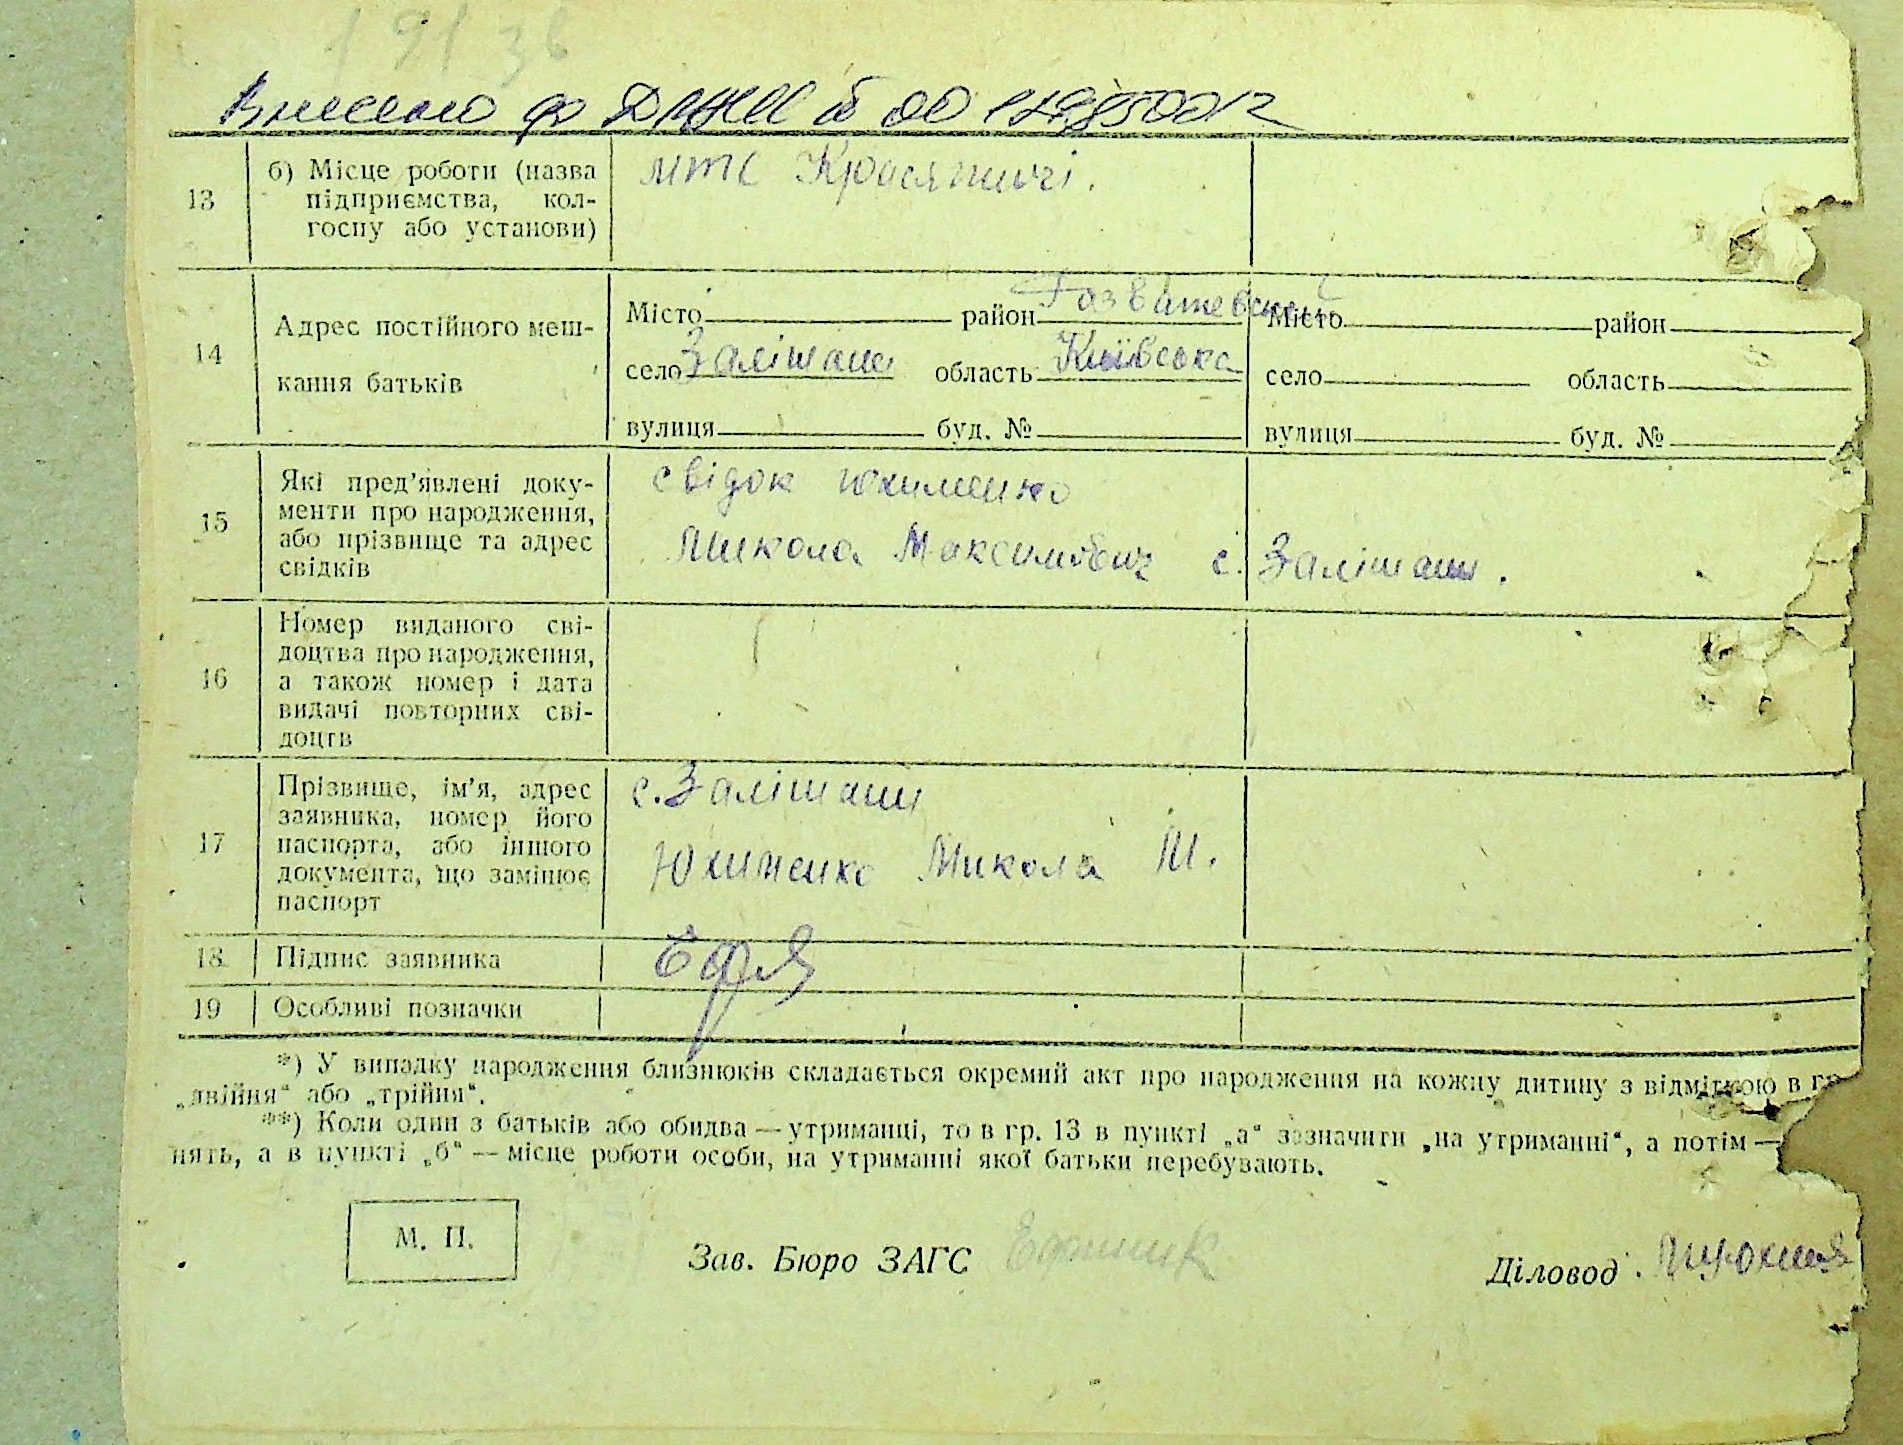 Внесено до
13
б) Місце роботи (назва
підприємства, кол-
госпу або установи)
мтс
14
Адрес постійного меш-
кання батьків
Місто район
село Залішани область Київська
вулиця буд. №
Місто район
село область
вулиця буд. №
15
Які пред’явлені доку-
менти про народження,
або прізвище та адрес
свідків
свідок Юхименко
Микола Максимович с. Залішани.
16
Номер виданого сві-
доцтва про народження,
а також номер і дата
видачі повторних сві-
доцтв
17
Прізвище, ім’я, адрес
заявника, номер його
паспорта, або іншого
документа, що замінює
паспорт
с. Залішани
Юхименко Микола М.
18
Підпис заявника
19
Особливі позначки
*) У випадку народження близнюків складається окремий акт про народження на кожну дитину з відміткою в гр
„двійня“ або „трійня“.
**) Коли один з батьків або обидва — утриманці, то в гр. 13 в пункті „а“ зазначити „на утриманні“, а потім —
нять, а в пункті „б“ — місце роботи особи, на утриманні якої батьки перебувають.
М. П.
Зав. Бюро ЗАГС
Діловод